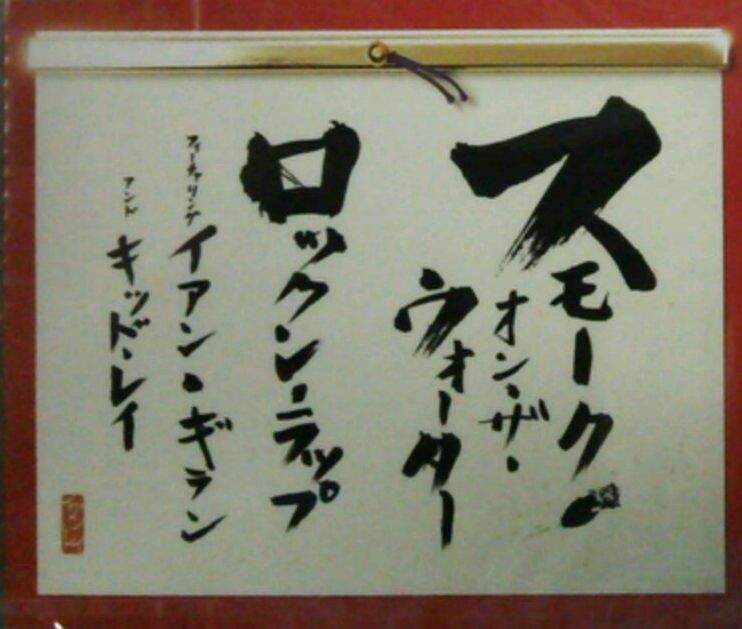 スモーク・
オン・ザ・
ウォーター
ロックン・ラップ
フィーチャリング
イアン・ギラン
アンド
キッド・レイ